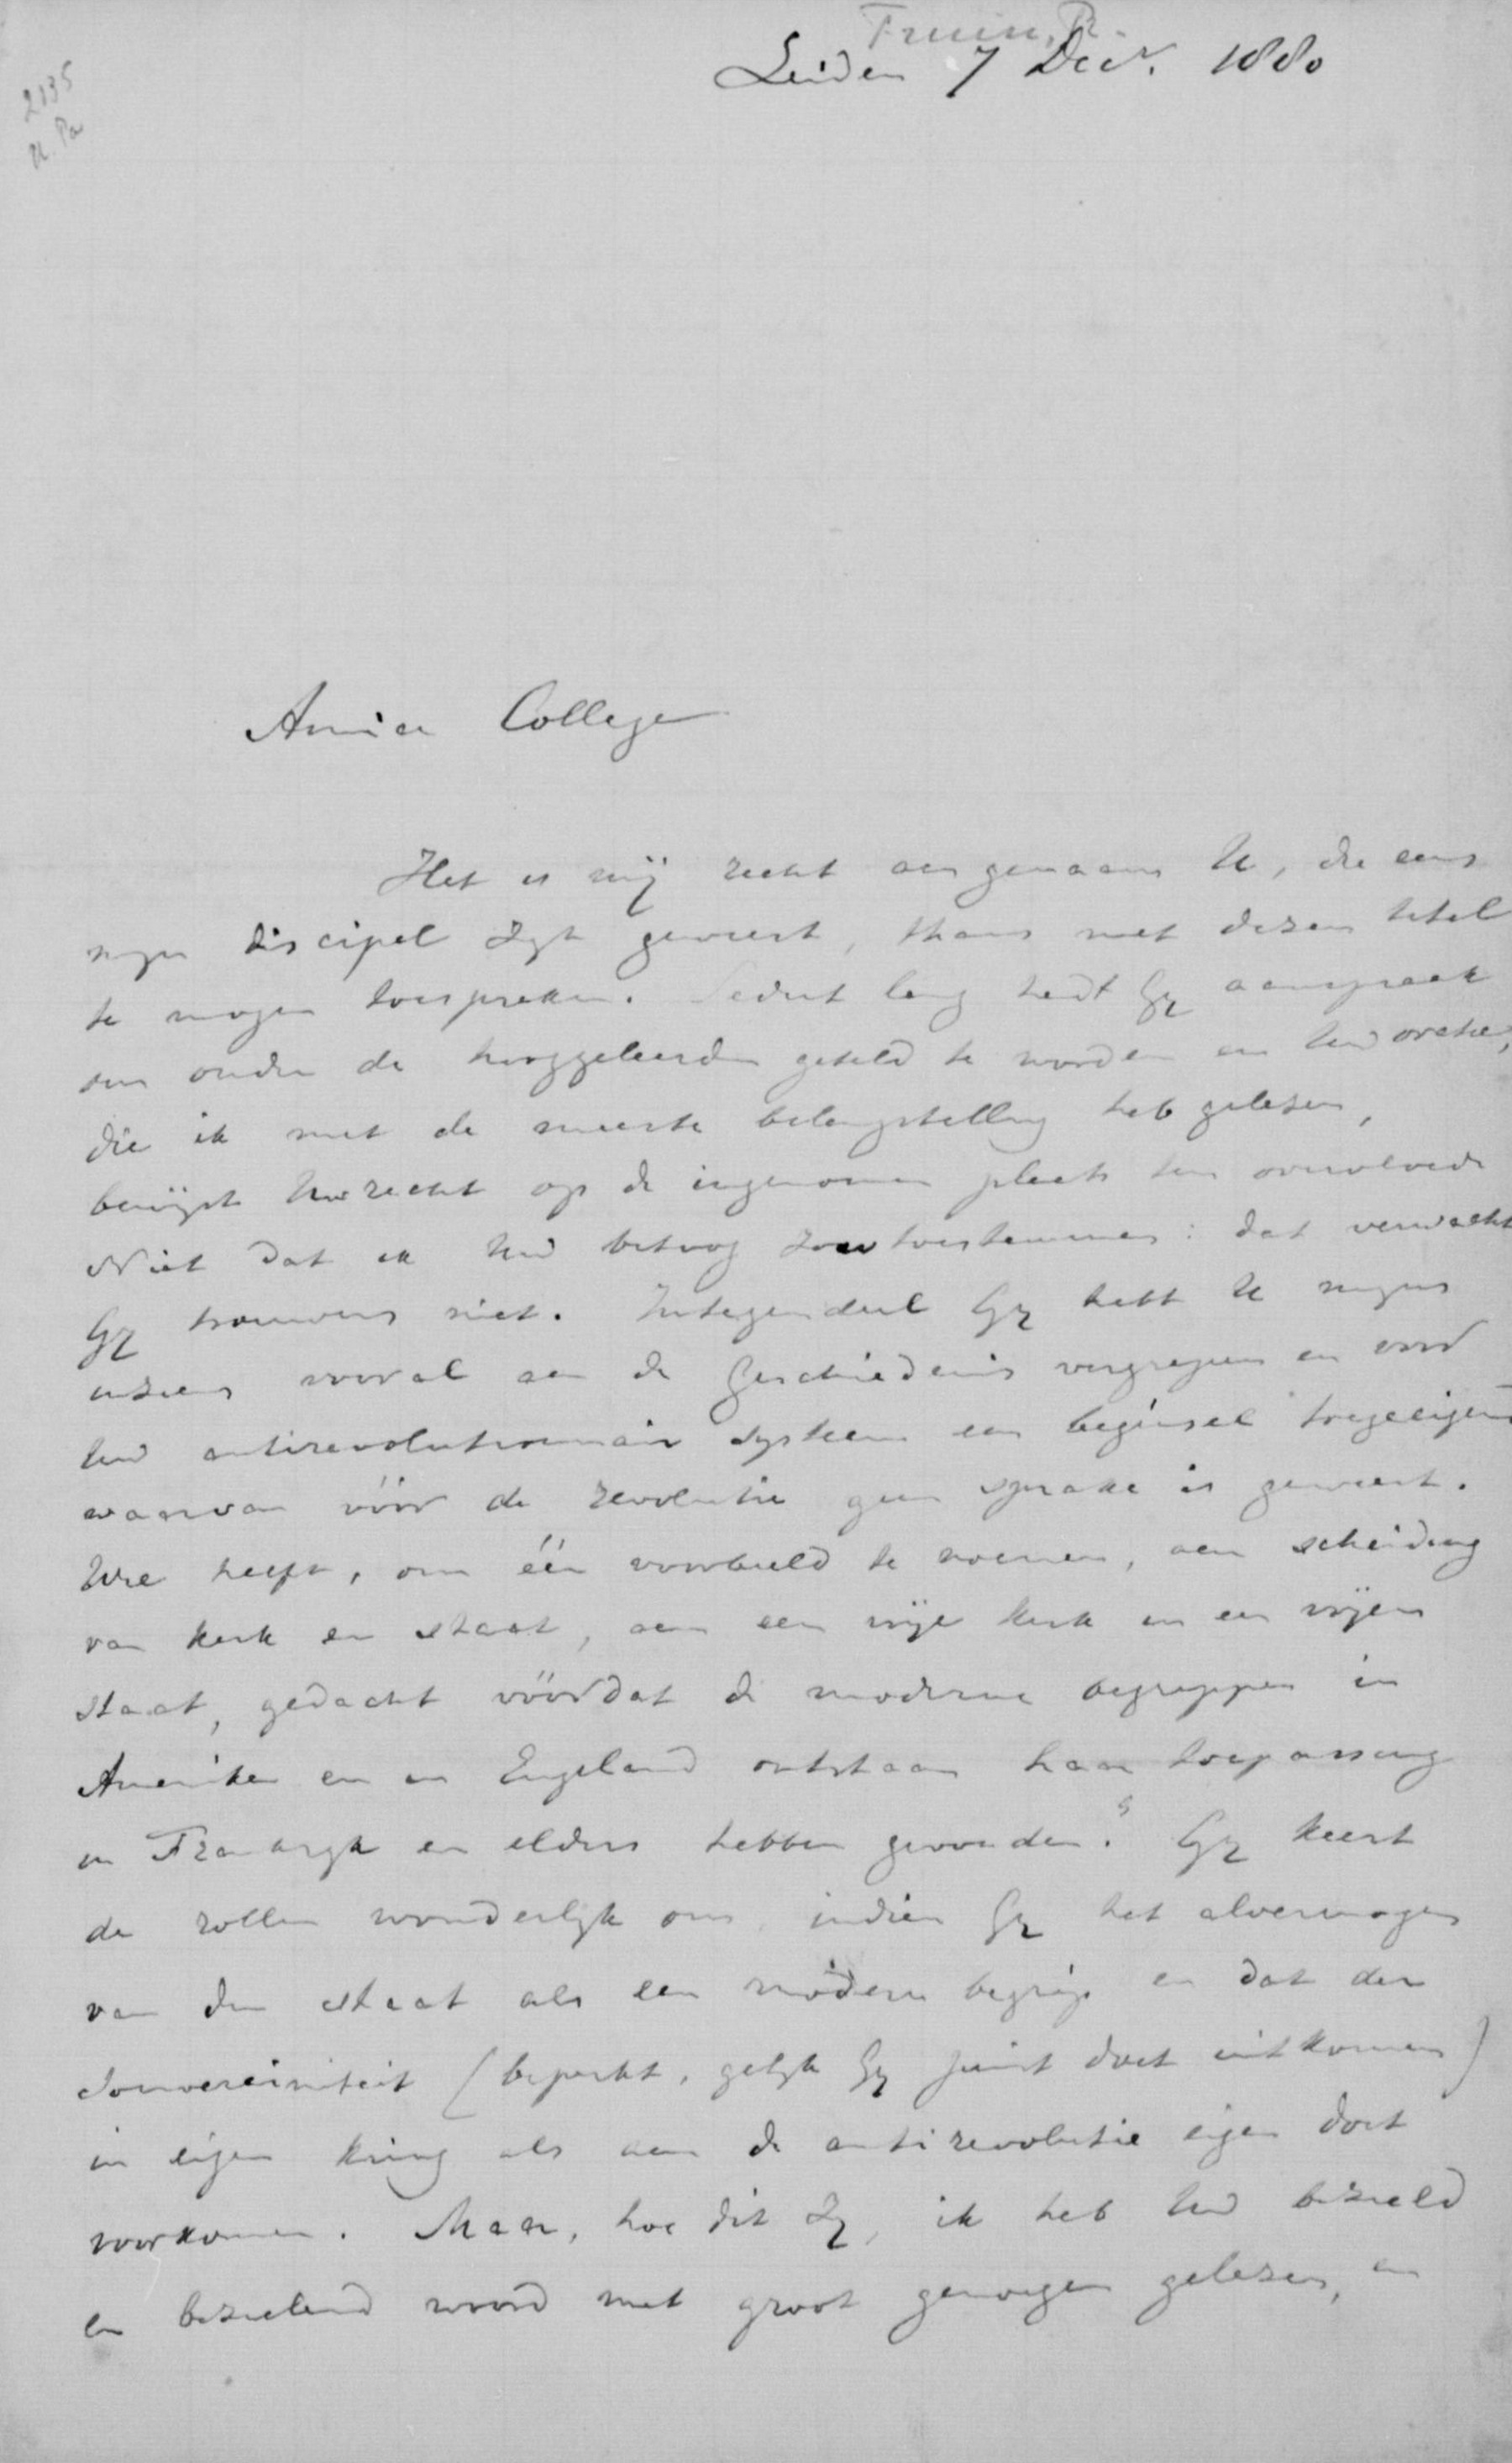 Fruin, R.
Leiden 7 Decr. 1880
2135
Amice Collega
Het is mij recht aangenaam U, die eens
mijn discipel zijt geweest, thans met dezen titel
te mogen toespreken. Sedert lang hadt Gij aanspraak
om onder de hooggeleerden geteld te worden en Uw oratie,
die ik met de meeste belangstelling heb gelezen,
bewijst Uw recht op de ingenomen plaats ten overvloede
Niet dat ik Uw betoog zou toestemmen: dat verwacht
Gij trouwens niet. Integendeel Gij hebt U mijns
inziens vooral aan de geschiedenis vergrepen en voor
Uw antirevolutionair systeem een beginsel toegeëigend
waarvan vóór de revolutie geen sprake is geweest.
Wie heeft, om één voorbeeld te noemen, aan scheiding
van kerk en staat, aan een vrije kerk in een vrijen
staat, gedacht vóórdat de moderne begrippen in
Amerika en in Engeland ontstaan haar toepassing
in Frankrijk en elders hebben gevonden? Gij keert
de rollen wonderlijk om, indien Gij het alvermogen
van den staat als een modern begrip en dat der
souvereiniteit (beperkt, gelijk Gij juist doet uitkomen)
in eigen kring als aan de antirevolutie eigen doet
voorkomen. Maar, hoe dit zij, ik heb Uw bezield
en bezielend woord met groot genoegen gelezen, en